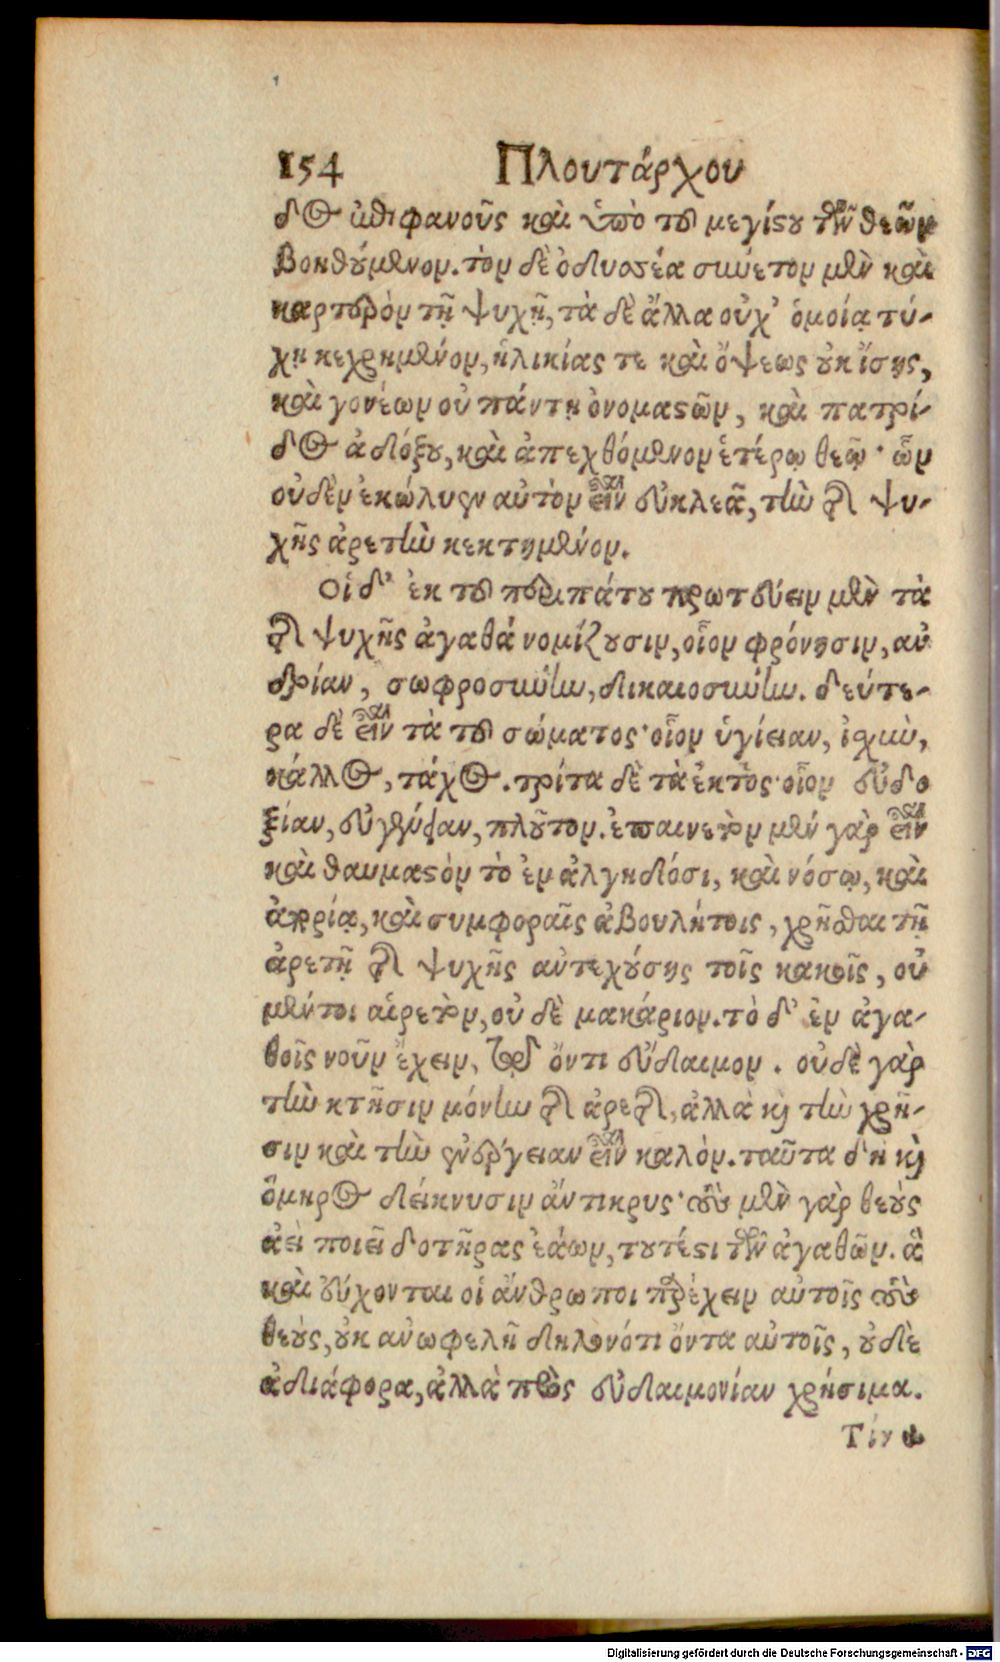 154 Πλουτάρχου
δος ἐπιφανοῦς καὶ ὑπὸ τοῦ μεγίστου τῶν θεῶν
βοηθούμενον. τὸν δὲ ὀδυσσέα συνετὸν μὲν καὶ
καρτερὸν τῇ ψυχῇ, τὰ δὲ ἄλλα οὐχ' ὁμοίᾳ τύ-
χῃ κεχρημένον, ἡλικίας τε καὶ ὄψεως οὐκ ἴσης,
καὶ γονέων οὐ πάντῃ ὀνομαστῶν, καὶ πατρί-
δος ἀδόξου, καὶ ἀπεχθόμενον ἑτέρῳ θεῷ· ὧν
οὐδὲν ἐκώλυσεν αὐτὸν εἶναι εὐκλεᾶ, τὴν τῆς ψυ-
χῆς ἀρετὴν κεκτημένον.
Οἱ δ' ἐκ τοῦ περιπάτου πρωτεύειν μὲν τὰ
τῆς ψυχῆς ἀγαθά νομίζουσιν, οἷον φρόνησιν, αν
δρίαν, σωφροσύνην, δικαιοσύνην. δεύτε-
ρα δὲ εἶναι τὰ τοῦ σώματος· οἷον ὑγίειαν, ἰσχὺν,
κάλλος, τάχος. τρίτα δὲ τὰ ἐκτὸς· οἷον εὐδο
ξίαν, εὐγένειαν, πλοῦτον. ἐπαινετὸν μέν γὰρ εἶναι
καὶ θαυμαστὸν τὸ ἐν ἀλγηδόσι, καὶ νόσῳ, καὶ
ἀπορίᾳ, καὶ συμφοραῖς ἀβουλήτοις, χρῆσθαι τῇ
ἀρετῇ τῆς ψυχῆς αὐτεχούσης τοῖς κακοῖς, οὐ
μέντοι αἱρετὸν, οὐ δὲ μακάριον. τὸ δ' ἐν ἀγα-
θοῖς νοῦν ἔχειν, τῷ ὄντι εὔδαιμον. οὐδὲ γὰρ
τὴν κτῆσιν μόνην τῆς ἀρετῆς, ἀλλὰ καὶ τὴν χρῆ-
σιν καὶ τὴν ἐνέργειαν εἶναι καλὸν. ταῦτα δὴ καὶ
ὅμηρος δείκνυσιν ἄντικρυς· τοὺς μὲν γὰρ θεοὺς
ἀεὶ ποιεῖ δοτῆρας ἑάων, τουτέστι τῶν ἀγαθῶν. ἃ
καὶ εὔχονται οἱ ἄνθρωποι παρέχειν αὐτοῖς τοὺς
θεοὺς, οὐκ ανωφελῆ δηλονότι ὄντα αὐτοῖς, οὐδὲ
ἀδιάφορα, ἀλλὰ πρὸς εὐδαιμονίαν χρήσιμα.
Τίνα
Digitalisierung gefördert durch die Deutsche Forschungsgemeinschaft - DFG